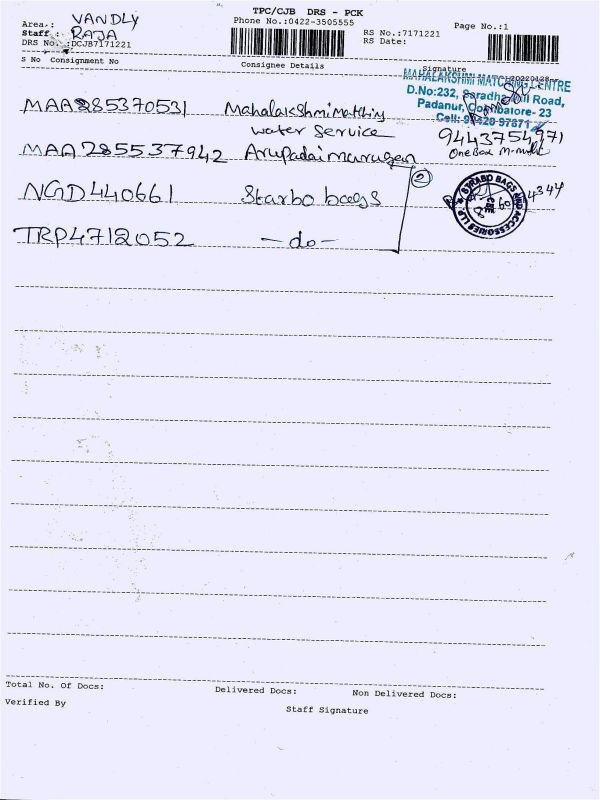 TPC/CJB DRS - PCK
Area.: VANDLY
Phone No.:0422-3505555
Page No.:1
Staff : RAJA
RS No.:7171221
DRS No.:DCJB7171221
RS Date:
S No Consignment No
Consignee Details
Signature
MAHALAKSHMI MATCHING CENTRE
D.No:232, Saradha Mill Road,
Padanur, Coimbatore- 23
Cell:
MAA285370531 Mahalakshmi Matching
9443754971
water Service
One Box
MAA285537942 Arupadai murugan
NGD440661 Starbo bags
2
STRABO BAGS AND ACCESSORIES LLP
4344
TRP4712052 - do -
Total No. Of Docs:
Delivered Docs:
Non Delivered Docs:
Verified By
Staff Signature